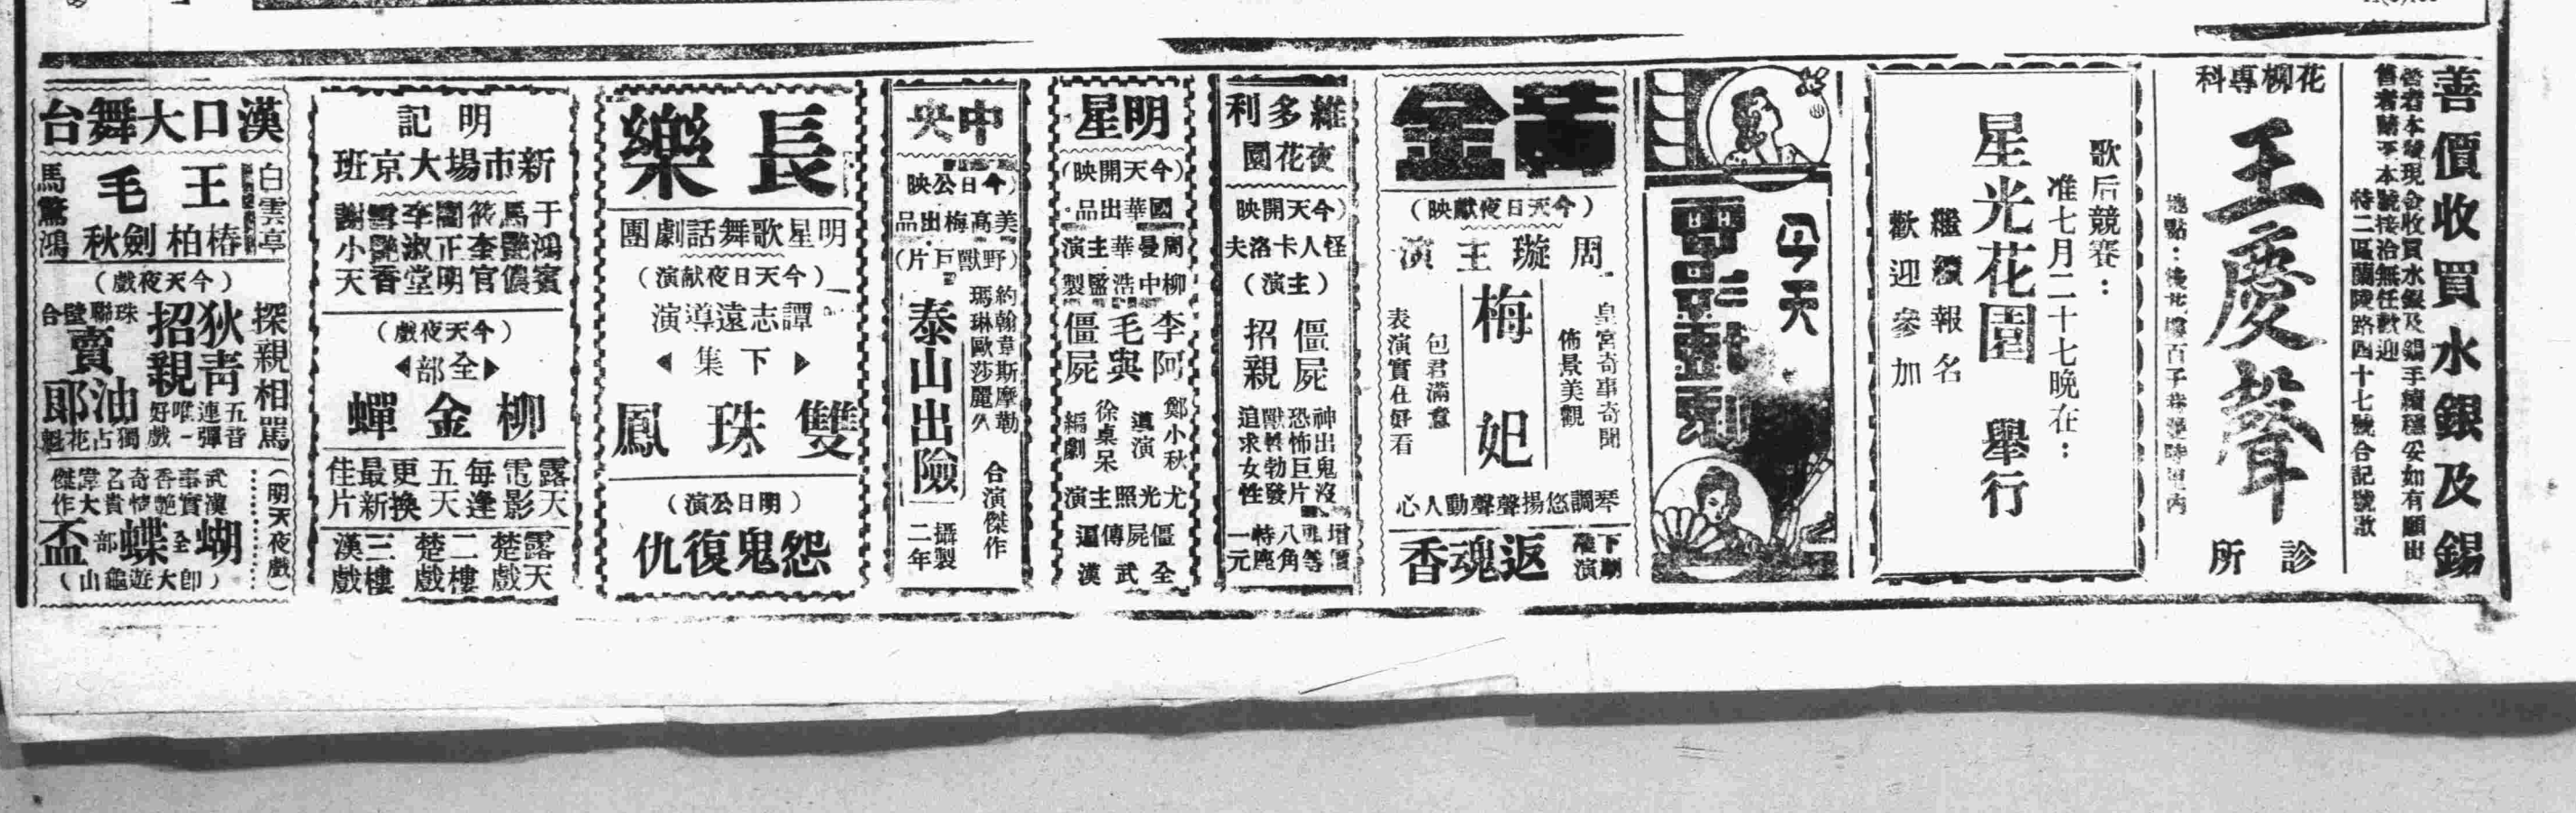 善價收買水銀及錫
營者本號現金收買水銀及錫手續穩妥如有願出
售者請予本號接洽無任歡迎
特二區蘭陵路四十七號合記號啟
花柳專科
王慶聲
診所
歌后競賽：
准七月二十七晚在：
星光花園 舉行
繼續報名
歡迎參加
今天
電影戲劇
黃金
（今天日夜獻映）
周璇王演
皇宮奇事奇聞
佈景美觀
梅妃
包君滿意
表演實在好看
琴調悠揚聲聲動人心
下期獻演
返魂香
維多利
夜花園
（今天開映）
怪人卡洛夫
（主演）
僵屍
招親
神出鬼沒
恐怖巨片
獸性勃發
追求女性
特座一元
明星
（今天開映）
國華出品
周曼華主演
柳中浩監製
李阿
毛與
僵屍
鄭小秋
導演
徐卓呆
編劇
尤光照主演
僵屍傳遍
全武漢
中央
（今日公映）
美高梅出品
（野獸巨片）
約翰韋斯摩勒
瑪琳歐莎麗久
合演傑作
泰山出險
攝製二年
長樂
明星歌舞話劇團
（今天日夜献演）
譚志遠導演
下集
雙珠鳳
（明日公演）
怨鬼復仇
明記
新市場大京班
于鴻賓
馬艷儂
筱奎官
閻正明
李淑堂
雪艷香
謝小天
（今天夜戲）
全部
柳金蟬
露天電影
每逢五天
更換最新佳片
露天楚戲
二樓楚戲
三樓漢戲
漢口大舞台
白雲亭
王椿柏
毛劍秋
馬驚鴻
（今天夜戲）
探親相罵
狄青招親
五音連彈
唯一好戲
珠聯璧合
賣油郎
獨占花魁
（明天夜戲）
武漢事實
香艷奇情
名貴偉大傑作
全部
蝴蝶盃
（即大遊龜山）